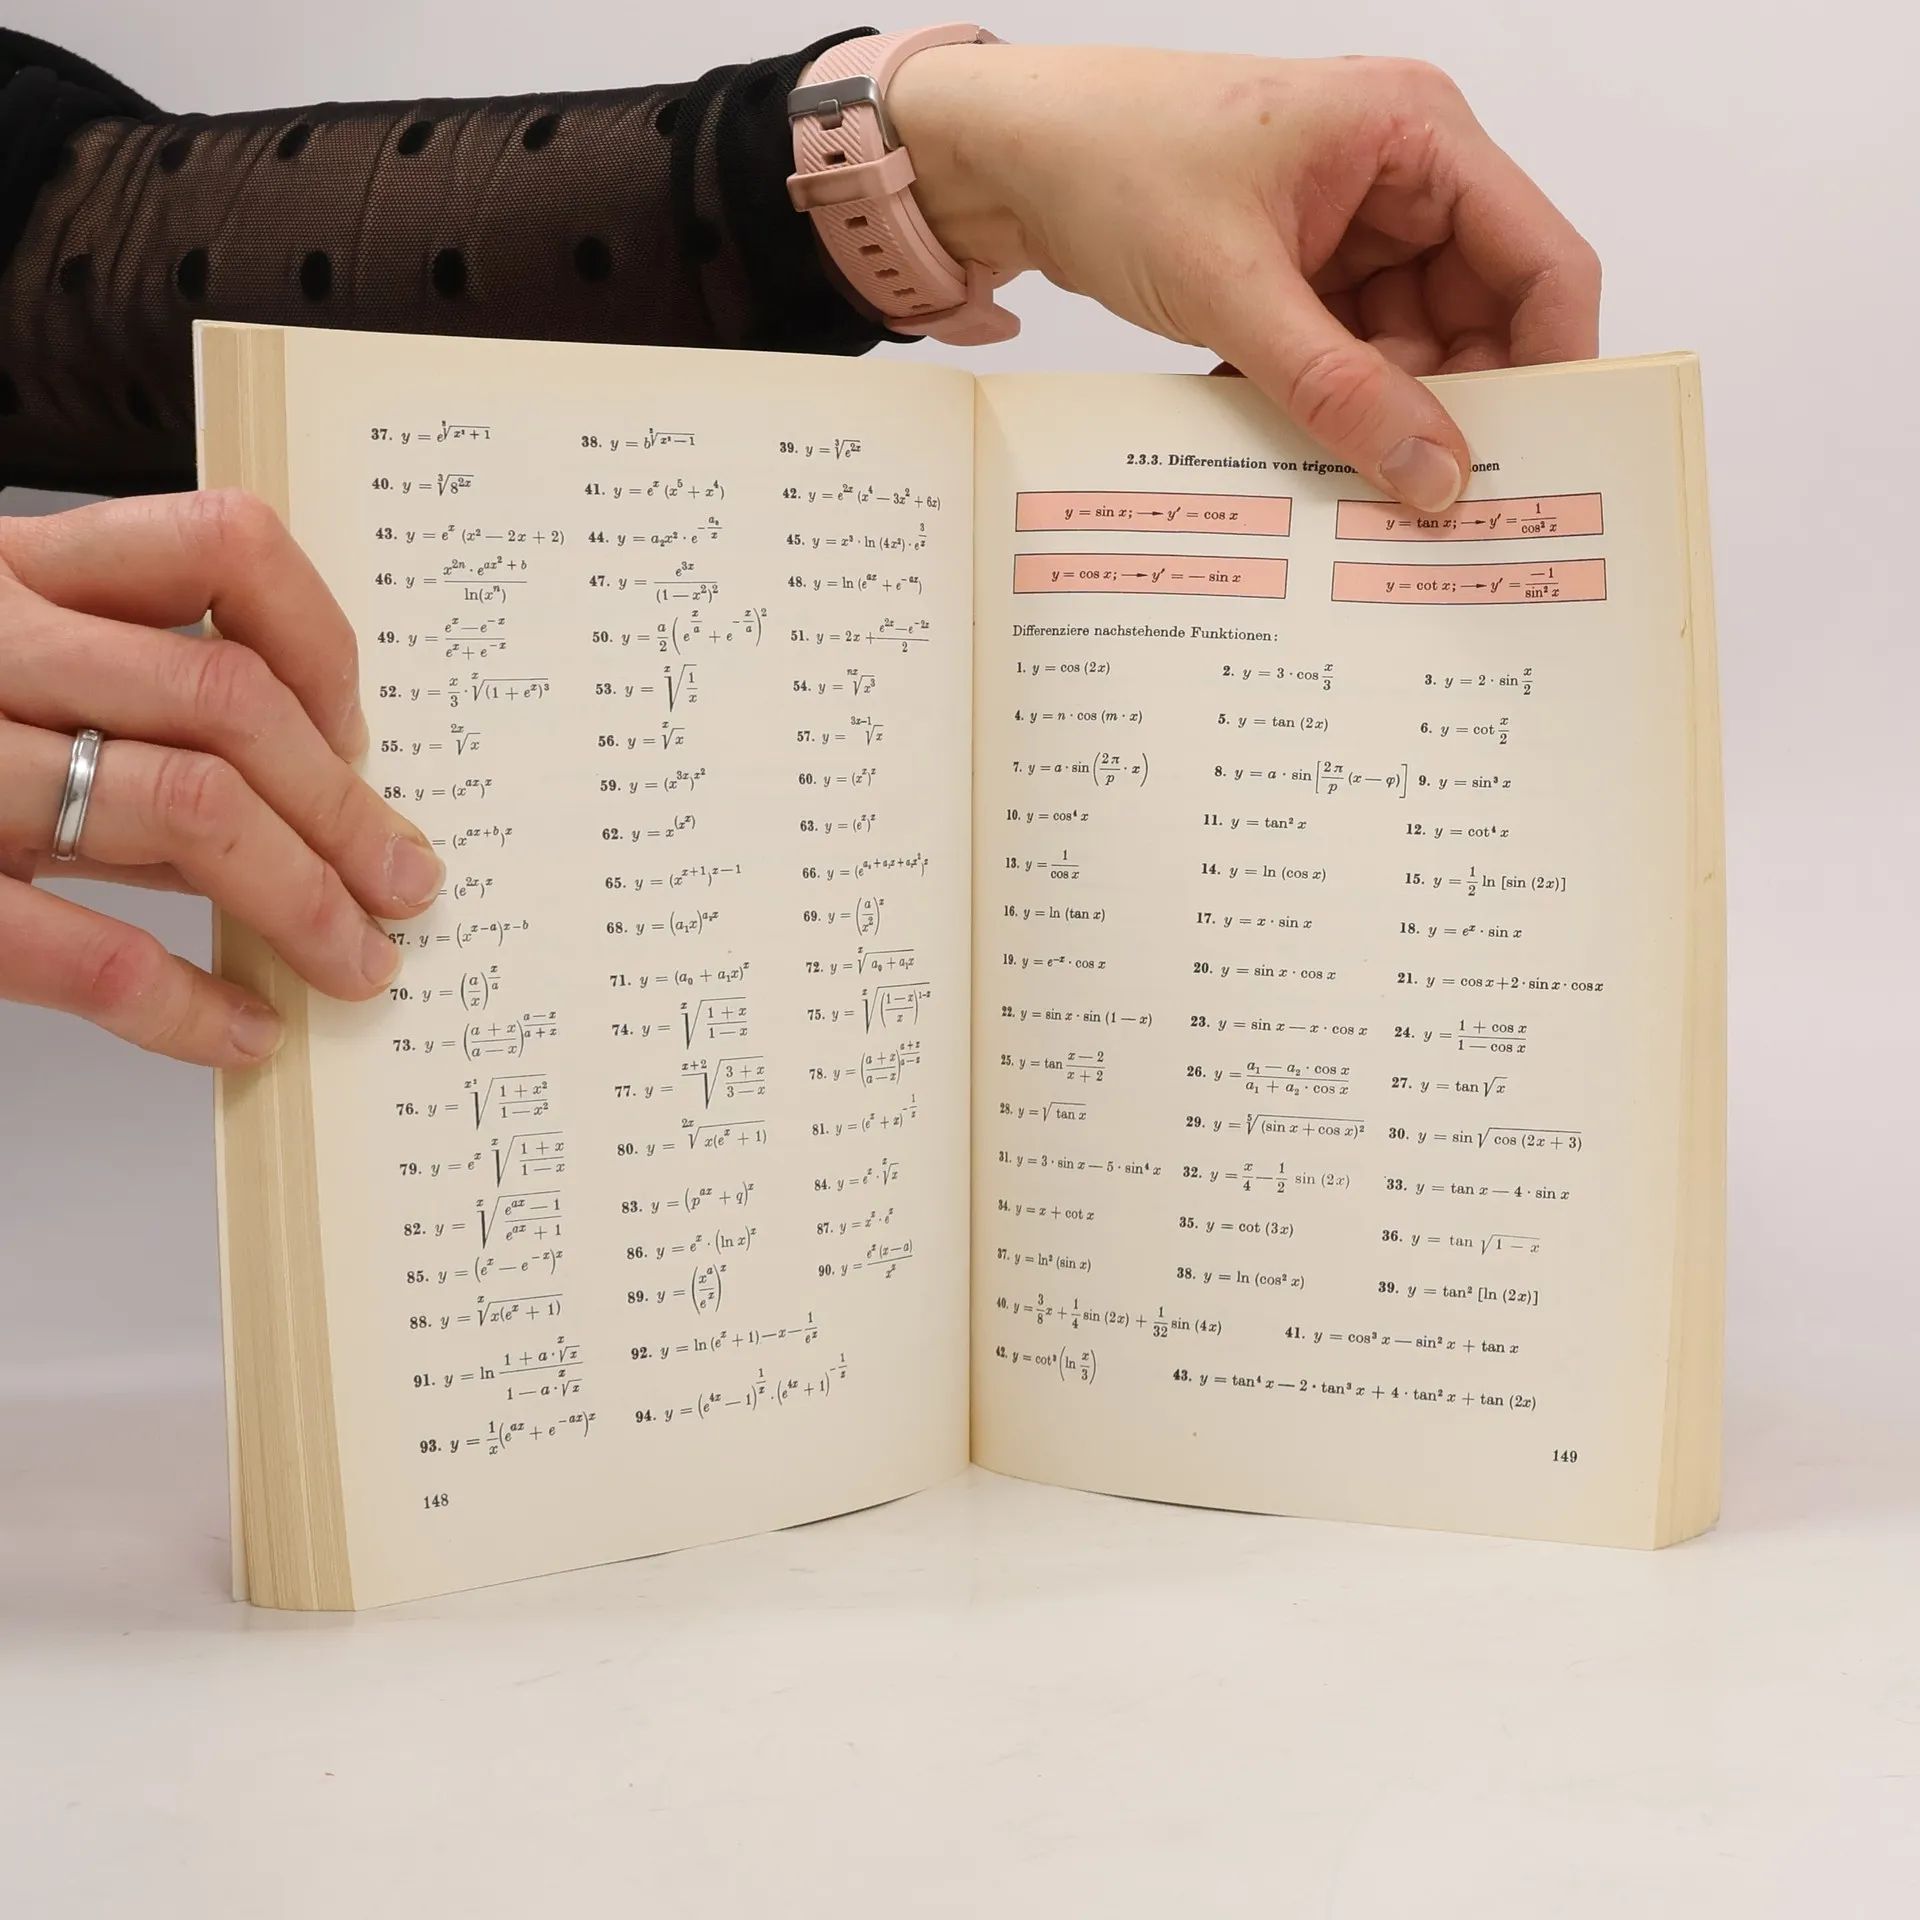 37. y = e^{\sqrt[3]{x² + 1}} 38. y = b^{\sqrt[3]{x² — 1}} 39. y = \sqrt[3]{e^{2x}}
40. y = \sqrt[3]{8^{2x}} 41. y = e^x (x^5 + x^4) 42. y = e^{2x} (x^4 — 3x^2 + 6x)
43. y = e^x (x² — 2x + 2) 44. y = a₂x² · e^{-\frac{a_0}{x}} 45. y = x³ · ln (4x²) · e^{\frac{3}{x}}
46. y = \frac{x^{2n} · e^{ax^2 + b}}{ln(x^n)} 47. y = \frac{e^{3x}}{(1 — x²)²} 48. y = ln (e^{ax} + e^{-ax})
49. y = \frac{e^x — e^{-x}}{e^x + e^{-x}} 50. y = \frac{a}{2}(e^{\frac{x}{a}} + e^{-\frac{x}{a}})^2 51. y = 2x + \frac{e^{2x} — e^{-2x}}{2}
52. y = \frac{x}{3} · \sqrt[x]{(1 + e^x)^3} 53. y = \sqrt[x]{\frac{1}{x}} 54. y = \sqrt[nx]{x^3}
55. y = \sqrt[2x]{x} 56. y = \sqrt[x]{x} 57. y = \sqrt[3x—1]{x}
58. y = (x^{ax})^x 59. y = (x^{3x})^{x^2} 60. y = (x^x)^x
= (x^{ax + b})^x 62. y = x^{(x^x)} 63. y = (e^x)^x
= (e^{2x})^x 65. y = (x^{x+1})^{x—1} 66. y = (e^{a₀ + a₁x + a₂x²})^x
67. y = (x^{x—a})^{x—b} 68. y = (a₁x)^{a₂x} 69. y = (\frac{a}{x²})^x
70. y = (\frac{a}{x})^{\frac{x}{a}} 71. y = (a₀ + a₁x)^x 72. y = \sqrt[x]{a₀ + a₁x}
73. y = (\frac{a + x}{a — x})^{\frac{a — x}{a + x}} 74. y = \sqrt[x]{\frac{1 + x}{1 — x}} 75. y = \sqrt[x]{(\frac{1 — x}{x})^{1-x}}
76. y = \sqrt[x²]{\frac{1 + x²}{1 — x²}} 77. y = \sqrt[x+2]{\frac{3 + x}{3 — x}} 78. y = (\frac{a + x}{a — x})^{\frac{a + x}{a — x}}
79. y = e^x \sqrt[x]{\frac{1 + x}{1 — x}} 80. y = \sqrt[2x]{x(e^x + 1)} 81. y = (e^x + x)^{-\frac{1}{x}}
82. y = \sqrt[x]{\frac{e^{ax} — 1}{e^{ax} + 1}} 83. y = (p^{ax} + q)^x 84. y = e^x · \sqrt[x]{x}
85. y = (e^x — e^{-x})^x 86. y = e^x · (ln x)^x 87. y = x^x · e^x
88. y = \sqrt[x]{x(e^x + 1)} 89. y = (\frac{x^a}{e^x})^x 90. y = \frac{e^x (x — a)}{x^x}
91. y = ln \frac{1 + a · \sqrt[x]{x}}{1 — a · \sqrt[x]{x}} 92. y = ln (e^x + 1) — x — \frac{1}{e^x}
93. y = \frac{1}{x}(e^{ax} + e^{-ax})^x 94. y = (e^{4x} — 1)^{\frac{1}{x}} · (e^{4x} + 1)^{-\frac{1}{x}}
148
2.3.3. Differentiation von
onen
y = sin x; → y′ = cos x y = tan x; → y′ = \frac{1}{cos² x}
y = cos x; → y′ = — sin x y = cot x; → y′ = \frac{—1}{sin² x}
Differenziere nachstehende Funktionen:
1. y = cos (2x) 2. y = 3 · cos \frac{x}{3} 3. y = 2 · sin \frac{x}{2}
4. y = n · cos (m · x) 5. y = tan (2x) 6. y = cot \frac{x}{2}
7. y = a · sin (\frac{2π}{p} · x) 8. y = a · sin [\frac{2π}{p} (x — φ)] 9. y = sin³ x
10. y = cos⁴ x 11. y = tan² x 12. y = cot⁴ x
13. y = \frac{1}{cos x} 14. y = ln (cos x) 15. y = \frac{1}{2} ln [sin (2x)]
16. y = ln (tan x) 17. y = x · sin x 18. y = e^x · sin x
19. y = e^{-x} · cos x 20. y = sin x · cos x 21. y = cos x + 2 · sin x · cos x
22. y = sin x · sin (1 — x) 23. y = sin x — x · cos x 24. y = \frac{1 + cos x}{1 — cos x}
25. y = tan \frac{x — 2}{x + 2} 26. y = \frac{a₁ — a₂ · cos x}{a₁ + a₂ · cos x} 27. y = tan \sqrt{x}
28. y = \sqrt{tan x} 29. y = \sqrt[5]{(sin x + cos x)²} 30. y = sin \sqrt{cos (2x + 3)}
31. y = 3 · sin x — 5 · sin⁴ x 32. y = \frac{x}{4} — \frac{1}{2} sin (2x) 33. y = tan x — 4 · sin x
34. y = x + cot x 35. y = cot (3x) 36. y = tan \sqrt{1 — x}
37. y = ln² (sin x) 38. y = ln (cos² x) 39. y = tan² [ln (2x)]
40. y = \frac{3}{8}x + \frac{1}{4} sin (2x) + \frac{1}{32} sin (4x) 41. y = cos³ x — sin² x + tan x
42. y = cot³ (ln \frac{x}{3}) 43. y = tan⁴ x — 2 · tan³ x + 4 · tan² x + tan (2x)
149